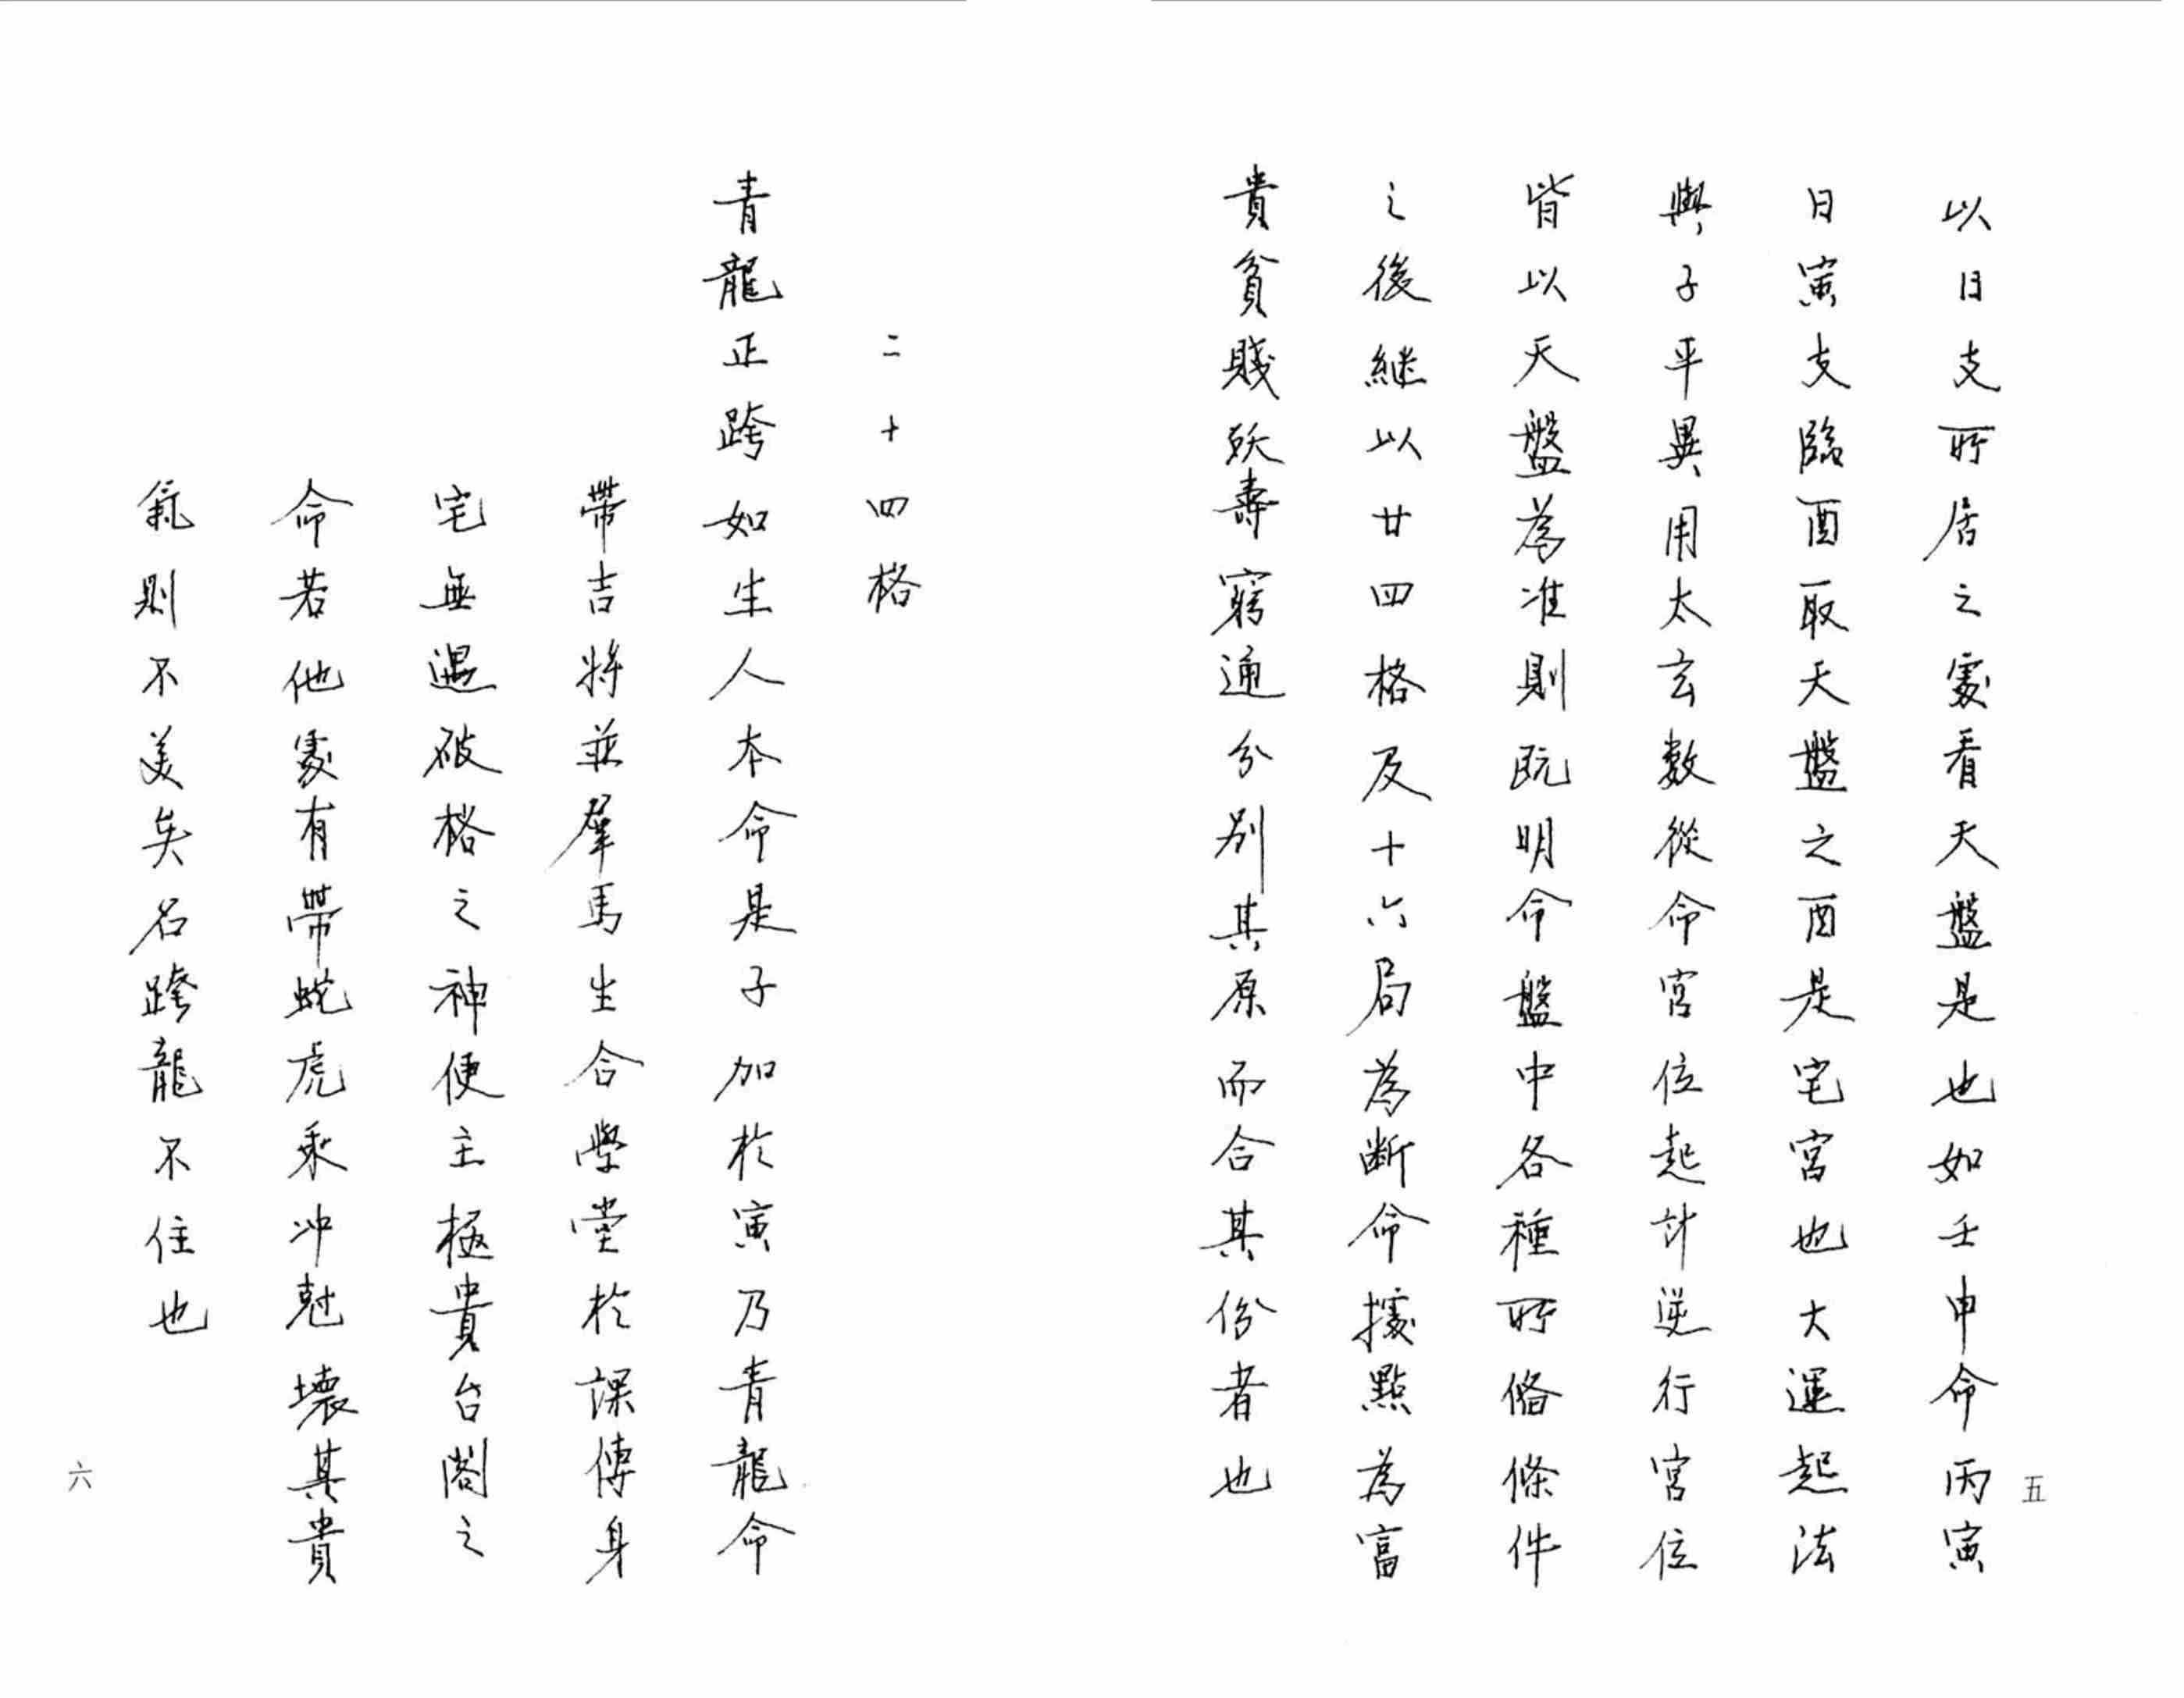 以日支所居之處看天盤是也如壬申命丙寅
日寅支臨酉取天盤之酉是宅宮也大運起法
與子平異用太玄數從命宮位起計逆行宮位
皆以天盤為准則既明命盤中各種所俻條件
之後継以廿四格及十六局為断命據點為富
貴貧賤殀壽窮通分別其原而合其份者也
五
二十四格
青龍正跨 如生人本命是子加於寅乃青龍命
帶吉將並羣馬生合學堂於課傳身
宅無遇破格之神便主極貴台閣之
命若他處有帶蛇虎乘冲尅壞其貴
氣則不美矣名跨龍不住也
六